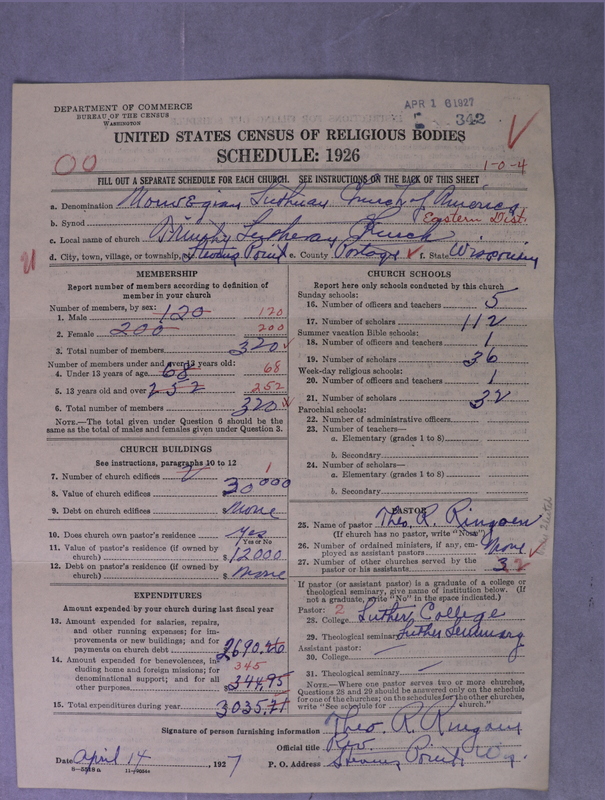 DEPARTMENT OF COMMERCE
BUREAU OF THE CENSUS
WASHINGTON
APR 16 1927
342
UNITED STATES CENSUS OF RELIGIOUS BODIES
SCHEDULE: 1926
00
1-0-4
FILL OUT A SEPARATE SCHEDULE FOR EACH CHURCH. SEE INSTRUCTIONS ON THE BACK OF THIS SHEET
a. Denomination Norwegian Lutheran Church of America
b. Synod Eastern Dist.
c. Local name of church Trinity Lutheran Church
d. City, town, village, or township, Stevens Point e. County Portage f. State Wisconsin
MEMBERSHIP
Report number of members according to definition of member in your church
Number of members, by sex:
1. Male 120 120
2. Female 200 200
3. Total number of members 320
Number of members under and over 13 years old:
4. Under 13 years of age 68 68
5. 13 years old and over 252 252
6. Total number of members 320
NOTE.—The total given under Question 6 should be the same as the total of males and females given under Question 3.
CHURCH BUILDINGS
See instructions, paragraphs 10 to 12
7. Number of church edifices 1
8. Value of church edifices $ 30000
9. Debt on church edifices $ None
10. Does church own pastor's residence? Yes
Yes or No
11. Value of pastor's residence (if owned by church) $ 12000
12. Debt on pastor's residence (if owned by church) $ None
EXPENDITURES
Amount expended by your church during last fiscal year
13. Amount expended for salaries, repairs, and other running expenses; for improvements or new buildings; and for payments on church debt 2690.
14. Amount expended for benevolences, including home and foreign missions; for denominational support; and for all other purposes 345 $ 344.95
15. Total expenditures during year 3035.
CHURCH SCHOOLS
Report here only schools conducted by this church
Sunday schools:
16. Number of officers and teachers 5
17. Number of scholars 112
Summer vacation Bible schools:
18. Number of officers and teachers 1
19. Number of scholars 36
Week-day religious schools:
20. Number of officers and teachers 1
21. Number of scholars 32
Parochial schools:
22. Number of administrative officers
23. Number of teachers—
a. Elementary (grades 1 to 8)
b. Secondary
24. Number of scholars—
a. Elementary (grades 1 to 8)
b. Secondary
PASTOR
25. Name of pastor Theo. R. Ringoen
(If church has no pastor, write "None")
26. Number of ordained ministers, if any, employed as assistant pastors None
27. Number of other churches served by the pastor or his assistants 3
If pastor (or assistant pastor) is a graduate of a college or theological seminary, give name of institution below. (If not a graduate, write "No" in the space indicated.)
Pastor: 2
28. College Luther College
29. Theological seminary Luther Seminary
Assistant pastor:
30. College
31. Theological seminary
NOTE.—Where one pastor serves two or more churches, Questions 28 and 29 should be answered only on the schedule for one of the churches; on the schedules for the other churches, write "See schedule for church."
Signature of person furnishing information Theo. R. Ringoen
Official title Rev.
Date April 14, 1927 P. O. Address Stevens Point, Wis.